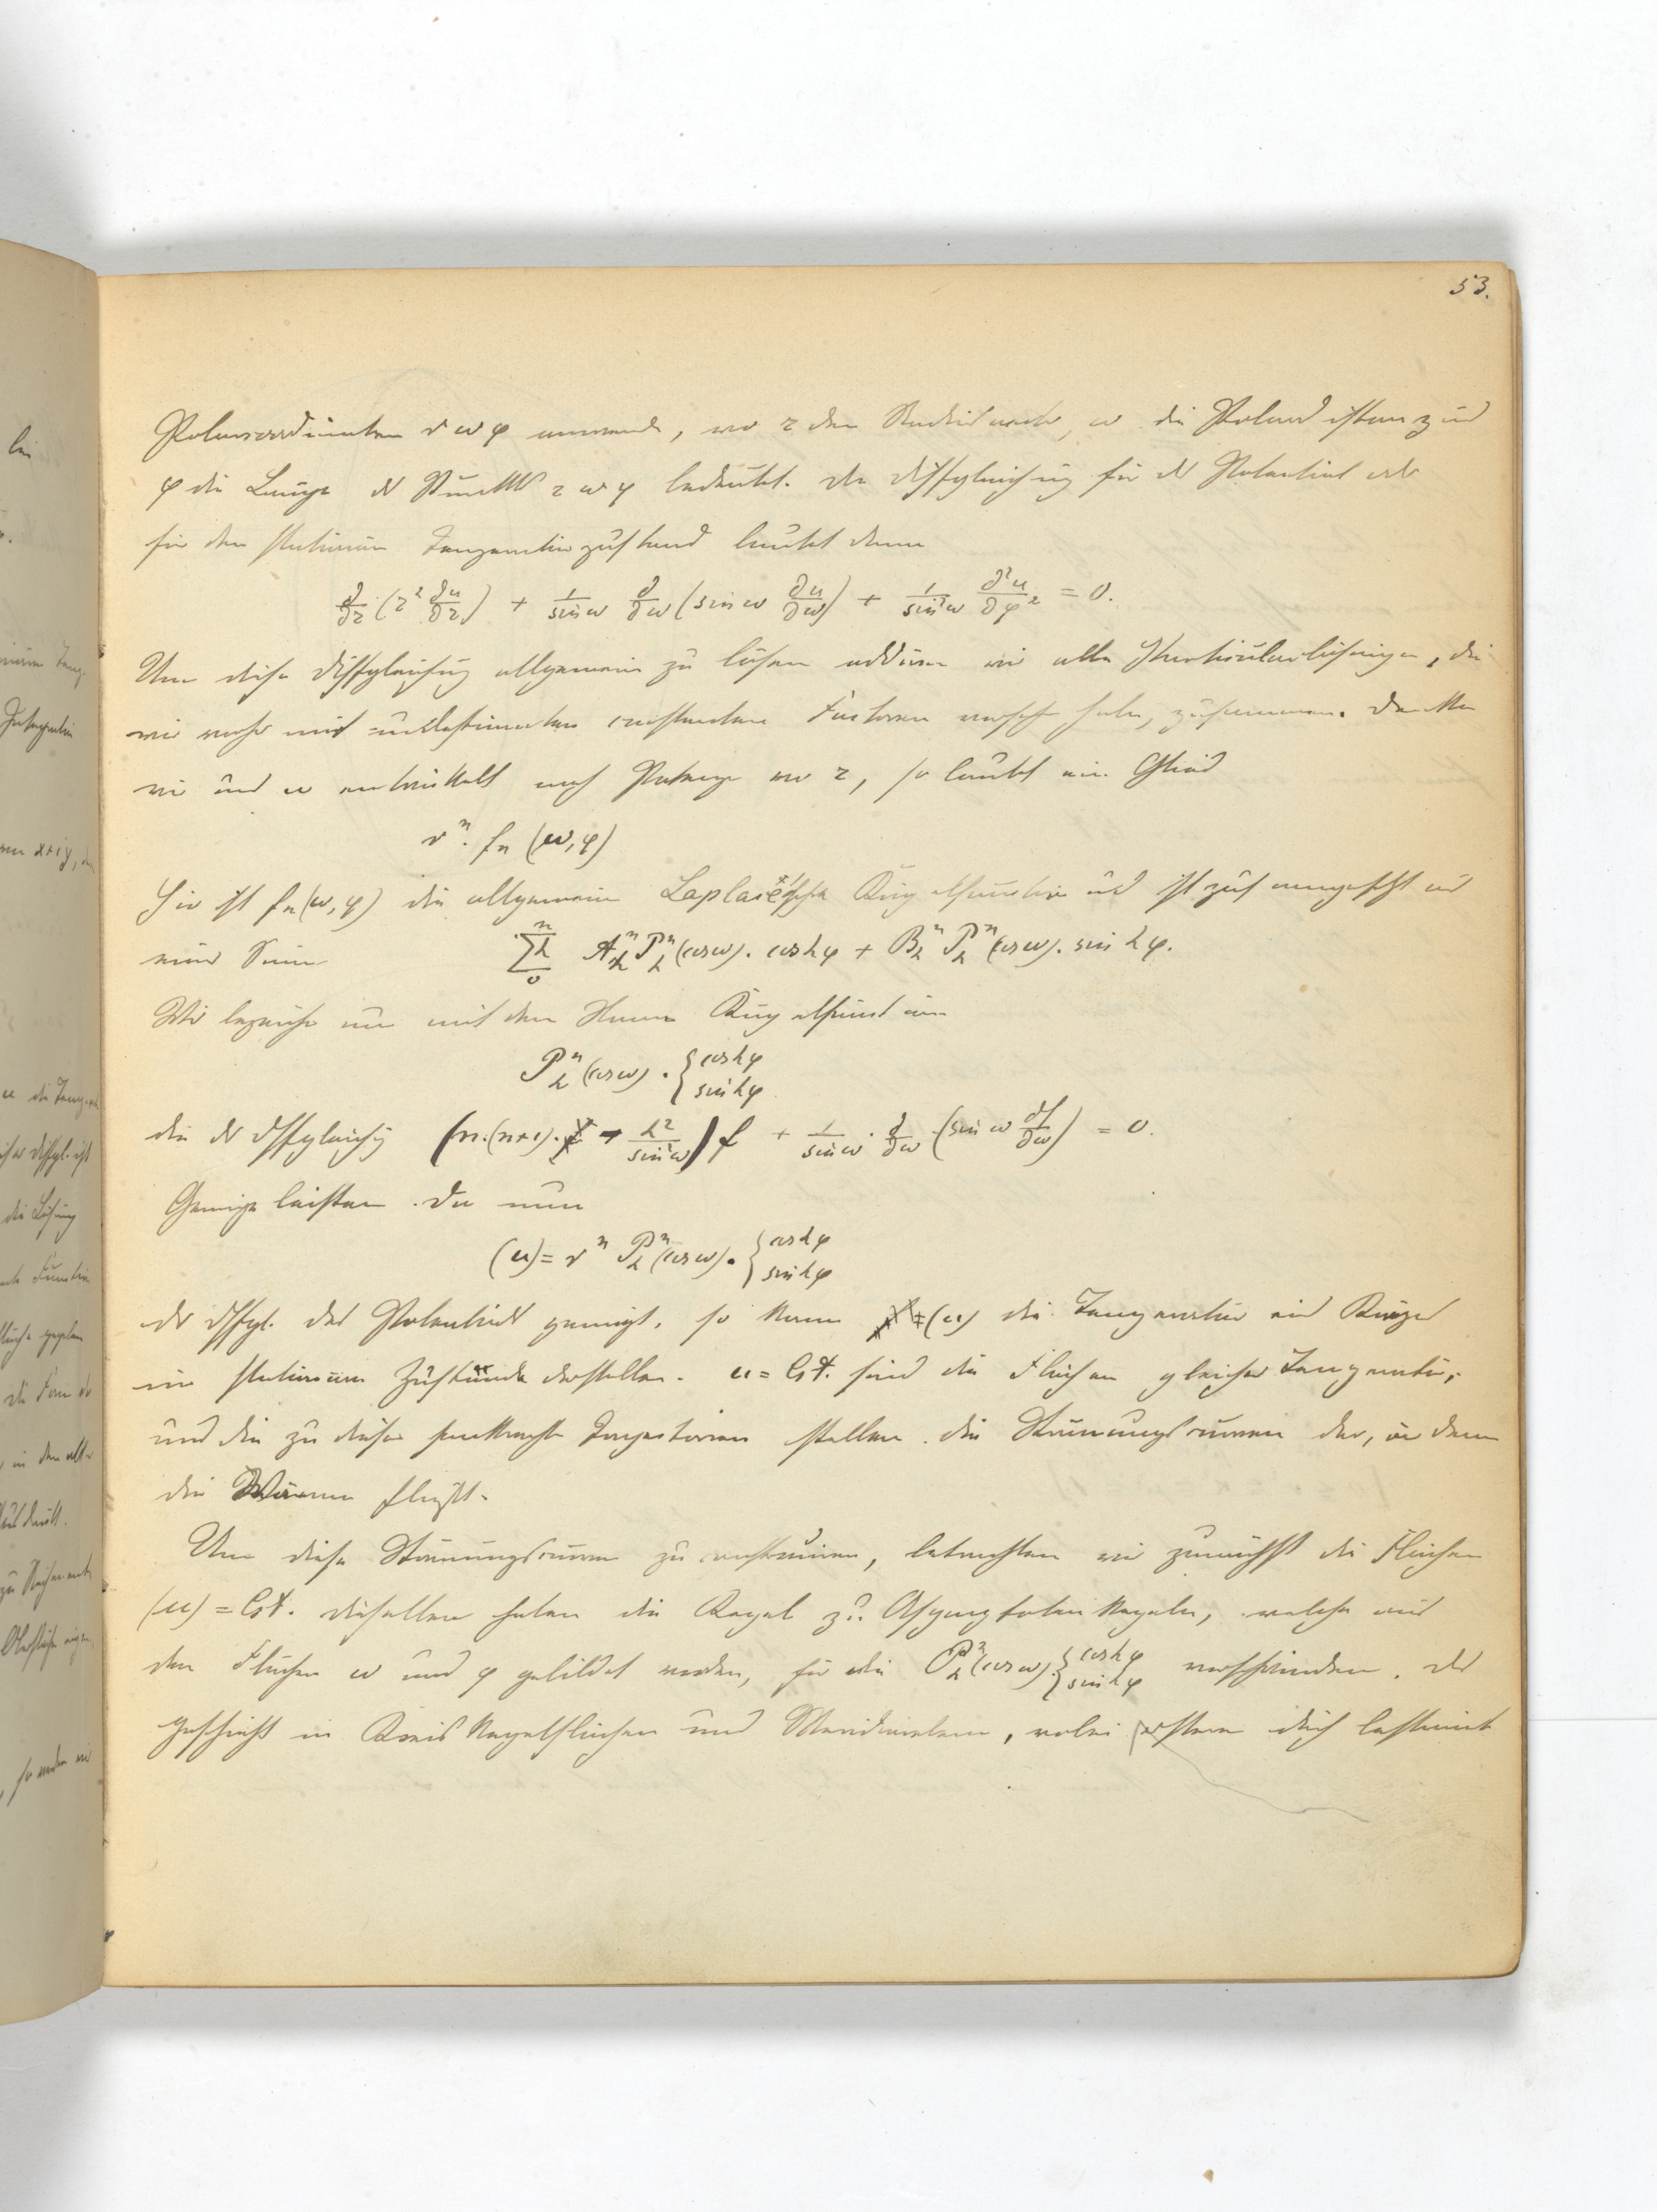 53.
Polarcoordinaten r ω φ anwende, wo r den Radiusvector, ω die Polardistanz und
φ die Länge des Punktes r ω φ bedeutet. Die Diffgleichung für das Potential oder
für den stationären Temperaturzustand lautet dann
∂/∂r (r² ∂u/∂r) + 1/sin ω ∂/∂ω (sin ω ∂u/∂ω) + 1/sin²ω ∂²u/∂φ² = 0.
Um diese Diffgleichung allgemein zu lösen addieren wir alle Particularlösungen, die
wir vorher mit unbestimmten constanten Factoren versehen haben, zusammen. Denken
wir uns u entwickelt nach Potenzen von r, so lautet ein Glied
rⁿ. fₙ (ω, φ)
Hier ist fₙ(ω, φ) die allgemeine Laplace'sche Kugelfunction und ist zusammengesetzt aus
einer Summe n Σh 0 Aₕⁿ Pₕⁿ(cos ω). cos hφ + Bₕⁿ Pₕⁿ(cos ω). sin hφ.
Wir bezeichnen nun mit dem Namen Kugelfunctionen
Pₕⁿ(cos ω) . { cos hφ sin hφ
die der Diffgleichung (n.(n+1). - h²/sin²ω) f + 1/sin ω . ∂/∂ω (sin ω ∂f/∂ω) = 0.
Genüge leisten. Da nun
(u) = rⁿ Pₕⁿ(cos ω). { cos hφ sin hφ
der Diffgl. des Potentials genügt, so kann (u) die Temperatur eines Körpers
im stationären Zustande darstellen. u = Cst. sind die Flächen gleicher Temperatur,
und die zu diesen senkrechten Trajectorien stellen die Strömungscurven dar, in denen
die Wärme fließt.
Um diese Strömungscurven zu construiren, betrachten wir zunächst die Flächen
(u) = Cst. Dieselben haben die Kegel zu Asymptotenkegeln, welche aus
den Flächen ω und φ gebildet werden, für die Pₕⁿ(cos ω). { cos hφ sin hφ verschwinden. Das
geschieht in Kreiskegelflächen und Meridianebenen, wobei erstere durch bestimmte